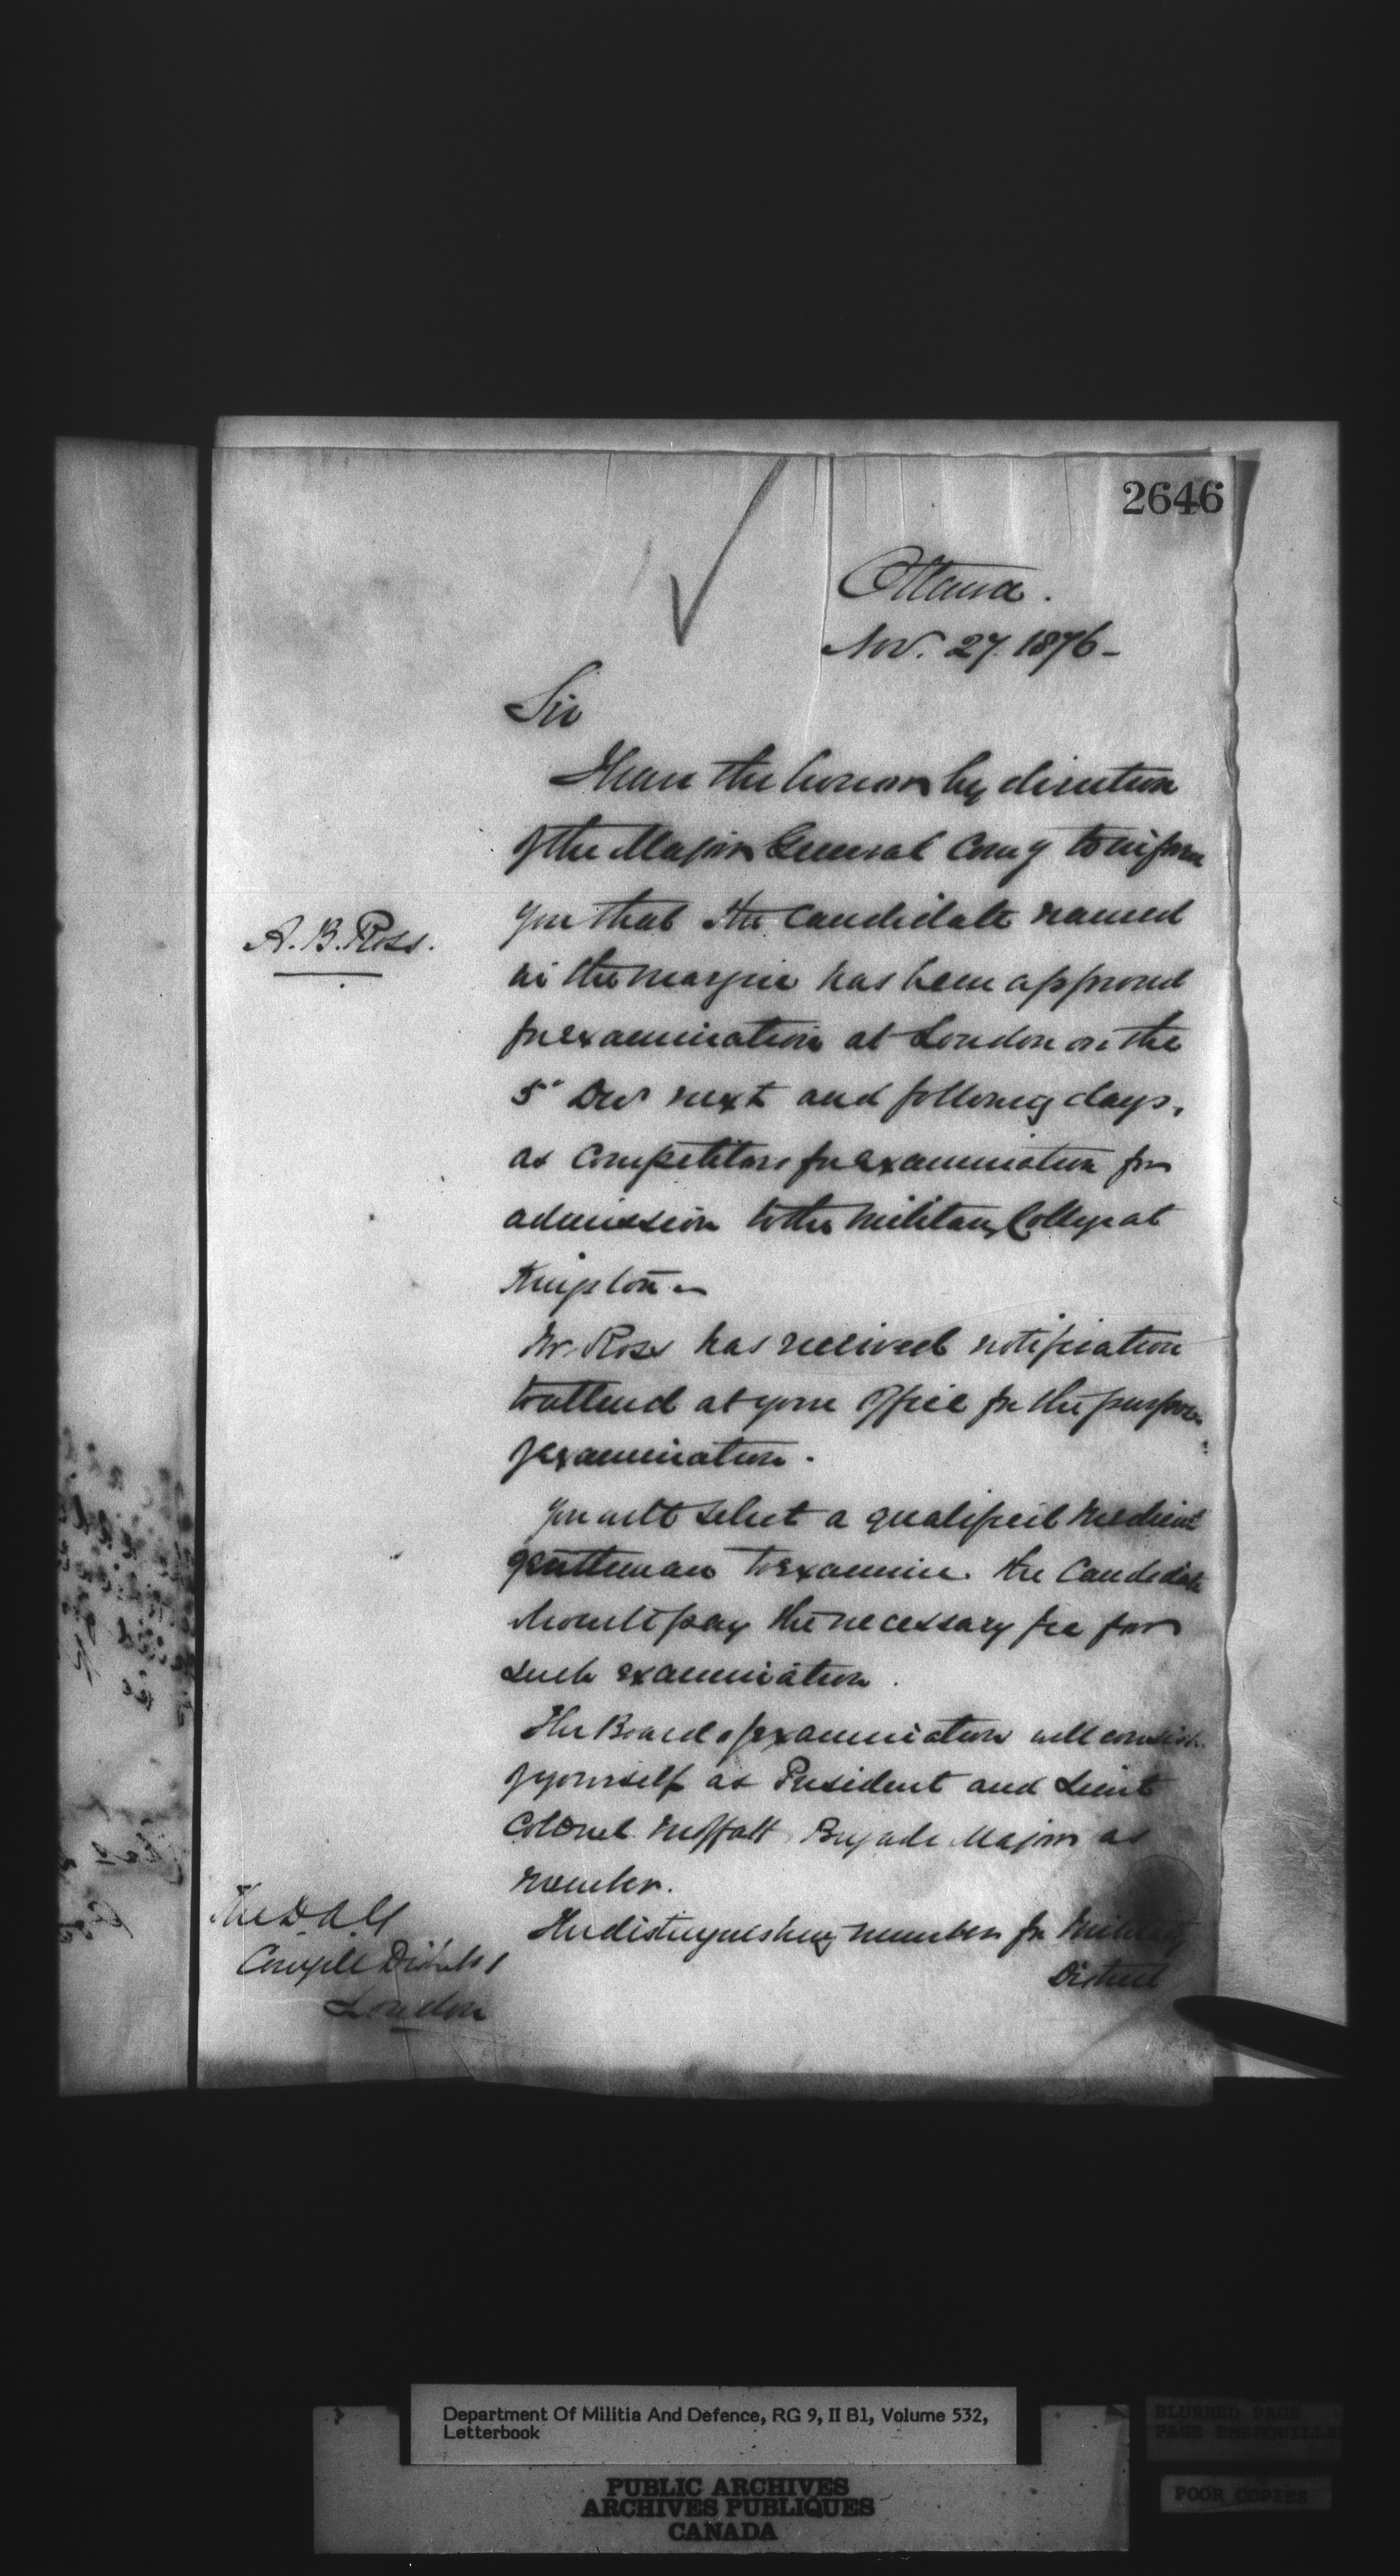 2646
Ottawa.
Nov. 27. 1876-
Sir
I have the honor by direction
of the Major General Comg to inform
A. B. Ross.
you that the Candidate named
in the margin has been approved
for examination at London on the
5" Decr next and following days,
as Competitors for examination for
admission to the Military College at
Kingston -
Mr. Ross has received notification
to attend at your Office for the purpose
of examination.
You will select a qualified Medical
gentleman to examine. the Candidate
should pay the necessary fee for
such examination.
The Board of examination will consist
of yourself as President and Lieut
Colonel Moffatt Brigade Major as
member.
The distinguishing number for Military
District
The D A G
Comg Districts 1
London
Department Of Militia And Defence, RG 9, II B1, Volume 532,
Letterbook
PUBLIC ARCHIVES
ARCHIVES PUBLIQUES
CANADA
BLURRED PAGE
PAGE EMBROUILLE
POOR COPIES